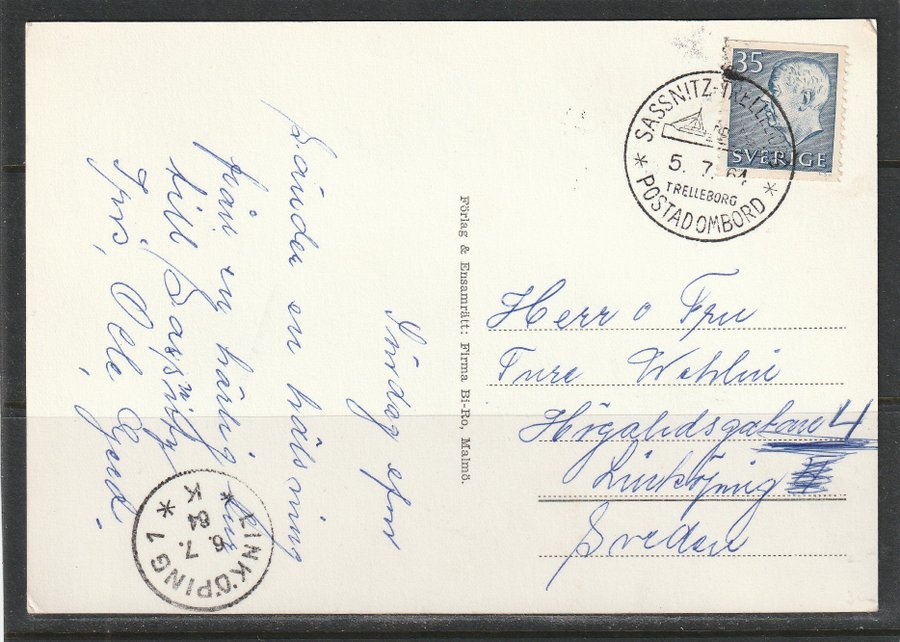 Söndag efm
Sänder en hälsning
från en härlig tur
till Sassnitz
Iris, Olle, Gend.
Förlag & Ensamrätt: Firma Bi-Ro, Malmö.
35
SVERIGE
SASSNITZ-TRELLEBORG
5. 7. 64
TRELLEBORG
* POSTAD OMBORD *
Herr o Fru
Ture Wahlin
Högalidsgatan 4
Linköping
Sweden
* LINKÖPING 1 *
6. 7.
64
K
G